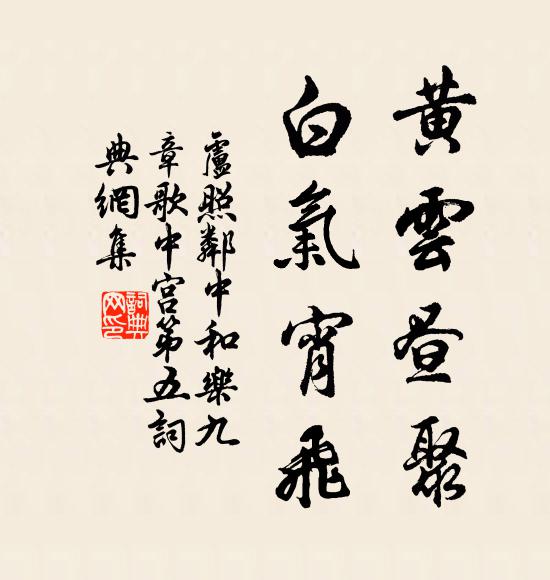 黄雲昼聚
白氣宵飛
盧照鄰中和樂九
章歌中宫第五詞
典網集
詞典
网印